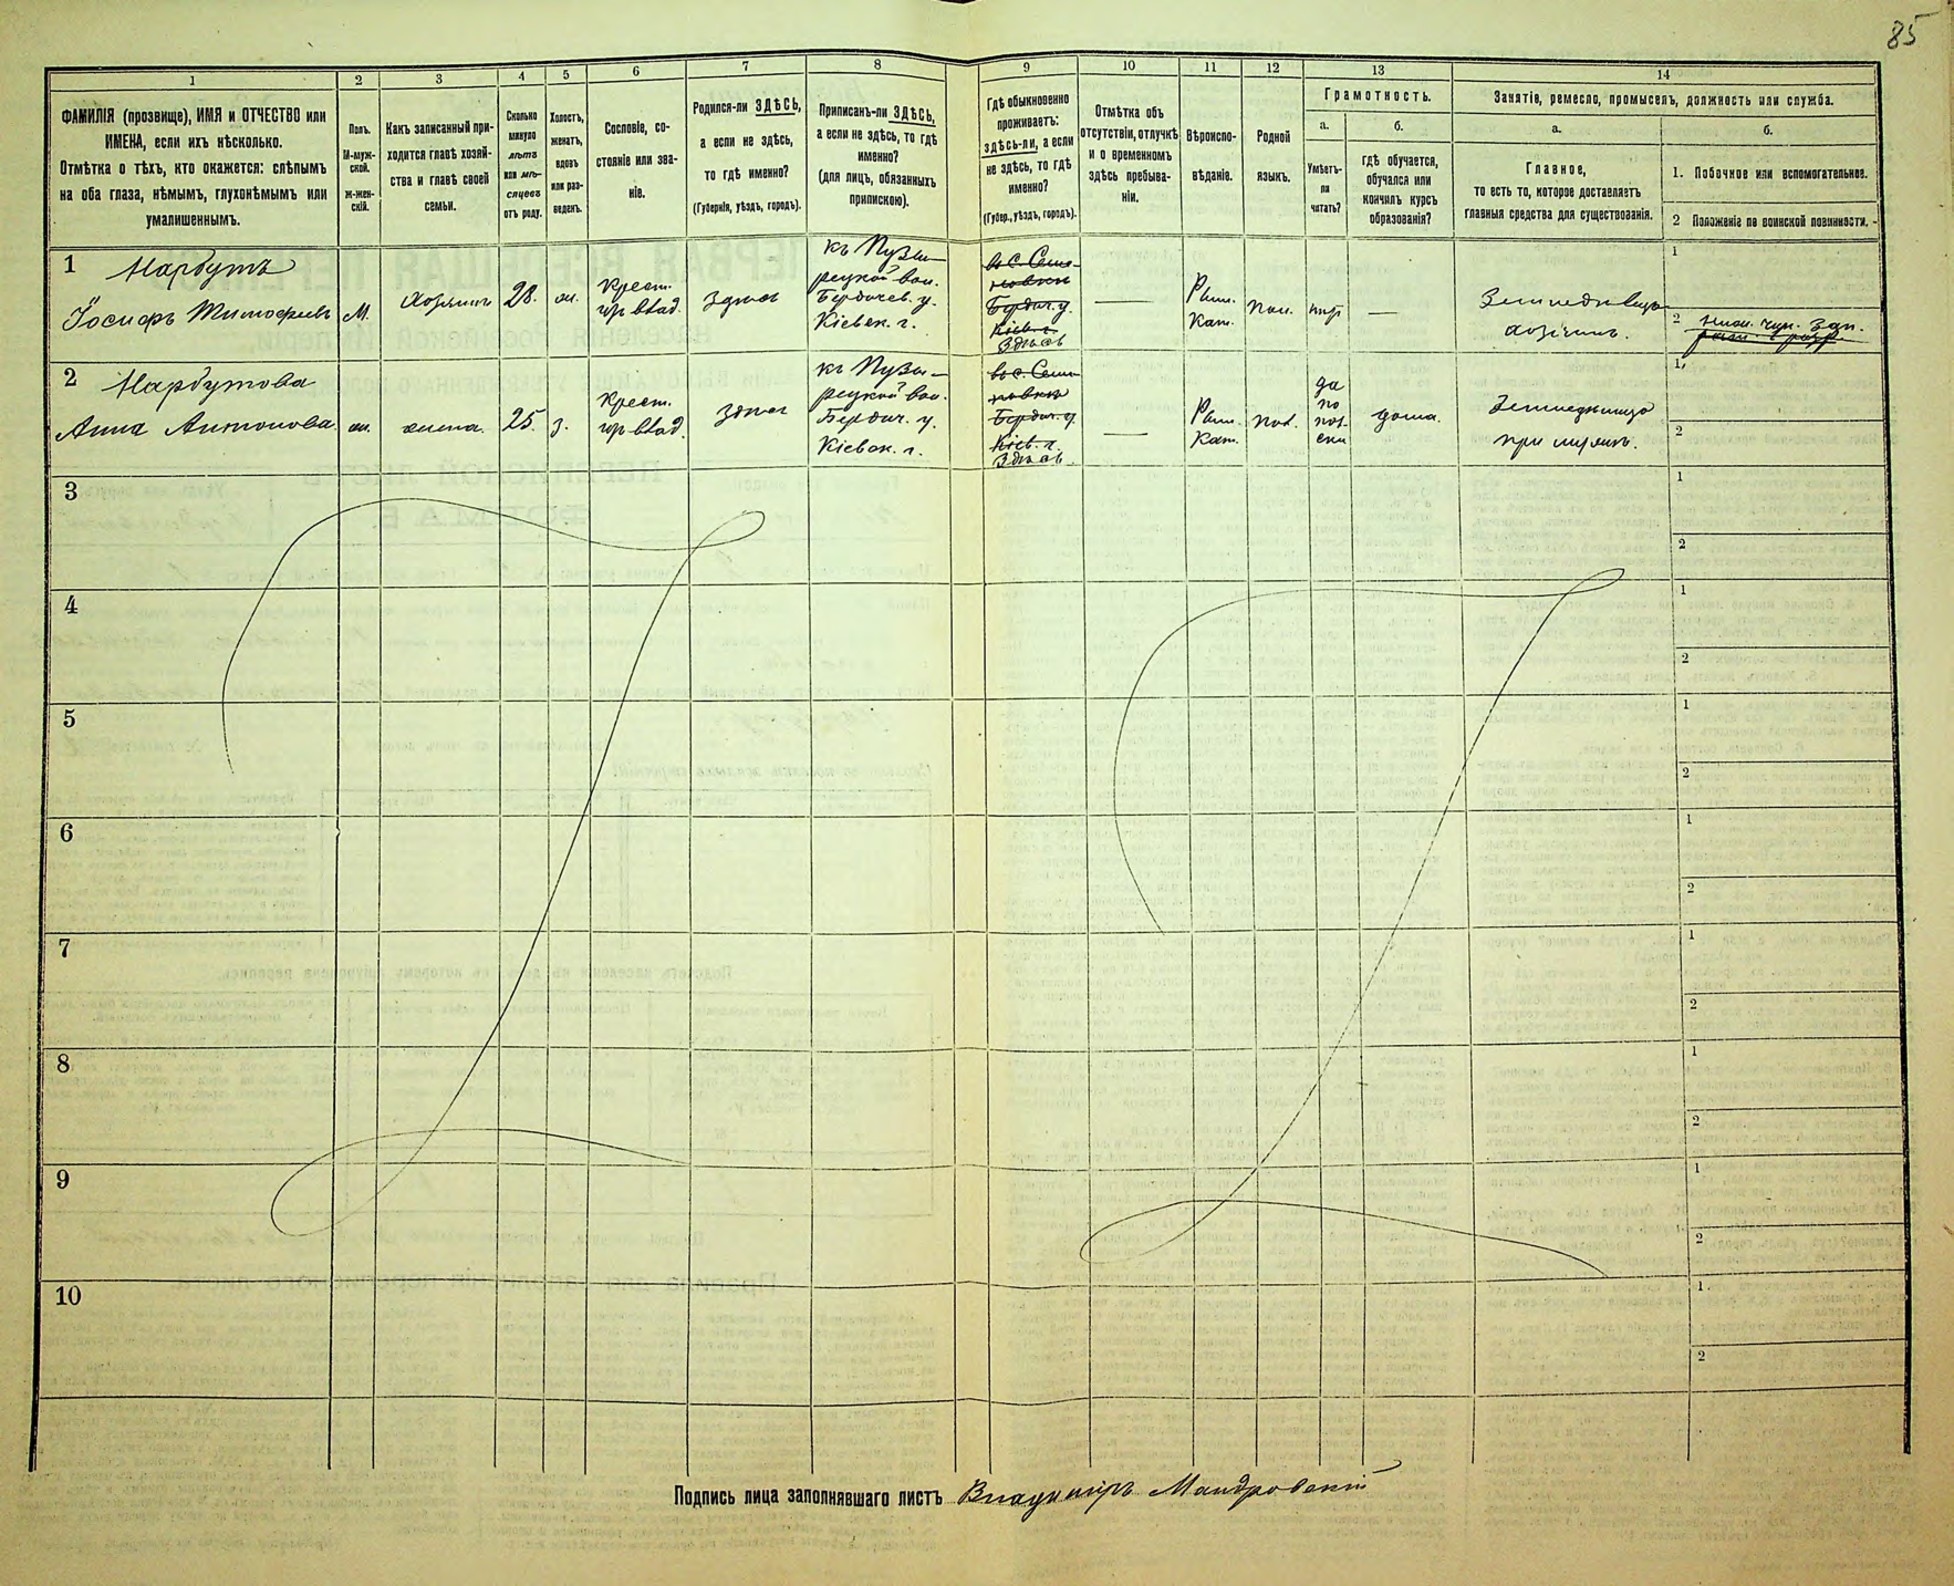 85
1
2
3
4
5
6
7
8
9
10
11
12
13
14
ФАМИЛІЯ (прозвище), ИМЯ и ОТЧЕСТВО или
ИМЕНА, если ихъ нѣсколько.
Отмѣтка о тѣхъ, кто окажется: слѣпымъ
на оба глаза, нѣмымъ, глухонѣмымъ или
умалишеннымъ.
Полъ.
М-муж-
ской.
ж-жен-
скій.
Какъ записанный при-
ходится главѣ хозяй-
ства и главѣ своей
семьи.
Сколько
минуло
лѣтъ
или мѣ-
сяцевъ
отъ роду.
Холостъ,
женатъ,
вдовъ
или раз-
веденъ.
Сословіе, со-
стояніе или зва-
ніе.
Родился-ли ЗДѢСЬ,
а если не здѣсь,
то гдѣ именно?
(Губернія, уѣздъ, городъ).
Приписанъ-ли ЗДѢСЬ,
а если не здѣсь, то гдѣ
именно?
(для лицъ, обязанныхъ
припискою).
Гдѣ обыкновенно
проживаетъ:
здѣсь-ли, а если
не здѣсь, то гдѣ
именно?
(Губер., уѣздъ, городъ).
Отмѣтка объ
отсутствіи, отлучкѣ
и о временномъ
здѣсь пребыва-
ніи.
Вѣроиспо-
вѣданіе.
Родной
языкъ.
Грамотность.
а.
Умѣетъ-
ли
читать?
б.
гдѣ обучается,
обучался или
кончилъ курсъ
образованія?
Занятіе, ремесло, промыселъ, должность или служба.
а.
Главное,
то есть то, которое доставляетъ
главныя средства для существованія.
б.
1. Побочное или вспомогательное.
2 Положеніе по воинской повинности.
1
Нарбутъ
Іосифъ Тимофеевъ
М.
хозяинъ
28.
ж.
Крест.
здѣсь
къ Пузы-
рецкой вол.
Бердичев. у.
Кіевск. г.
въ с. Семе-
новки
Бердич. у.
Кіев. г.
Здѣсь
Рим.
Кат.
пол.
нѣт
Земледѣлецъ
хозяинъ.
1
2
2
Нарбутова
Анна Антонова
ж.
жена.
25.
з.
Крест.
здѣсь
къ Пузы-
рецкой вол.
Бердич. у.
Кіевск. г.
въ с. Семе-
новки
Бердич. у.
Кіев. г.
Здѣсь
Рим.
Кат.
пол.
да
по
поль-
ски
дома.
при мужѣ.
1
2
3
1
2
4
1
2
5
1
2
6
1
2
7
1
2
8
1
2
9
1
2
10
1
2
Подпись лица заполнявшаго листъ Владиміръ Мандровскій